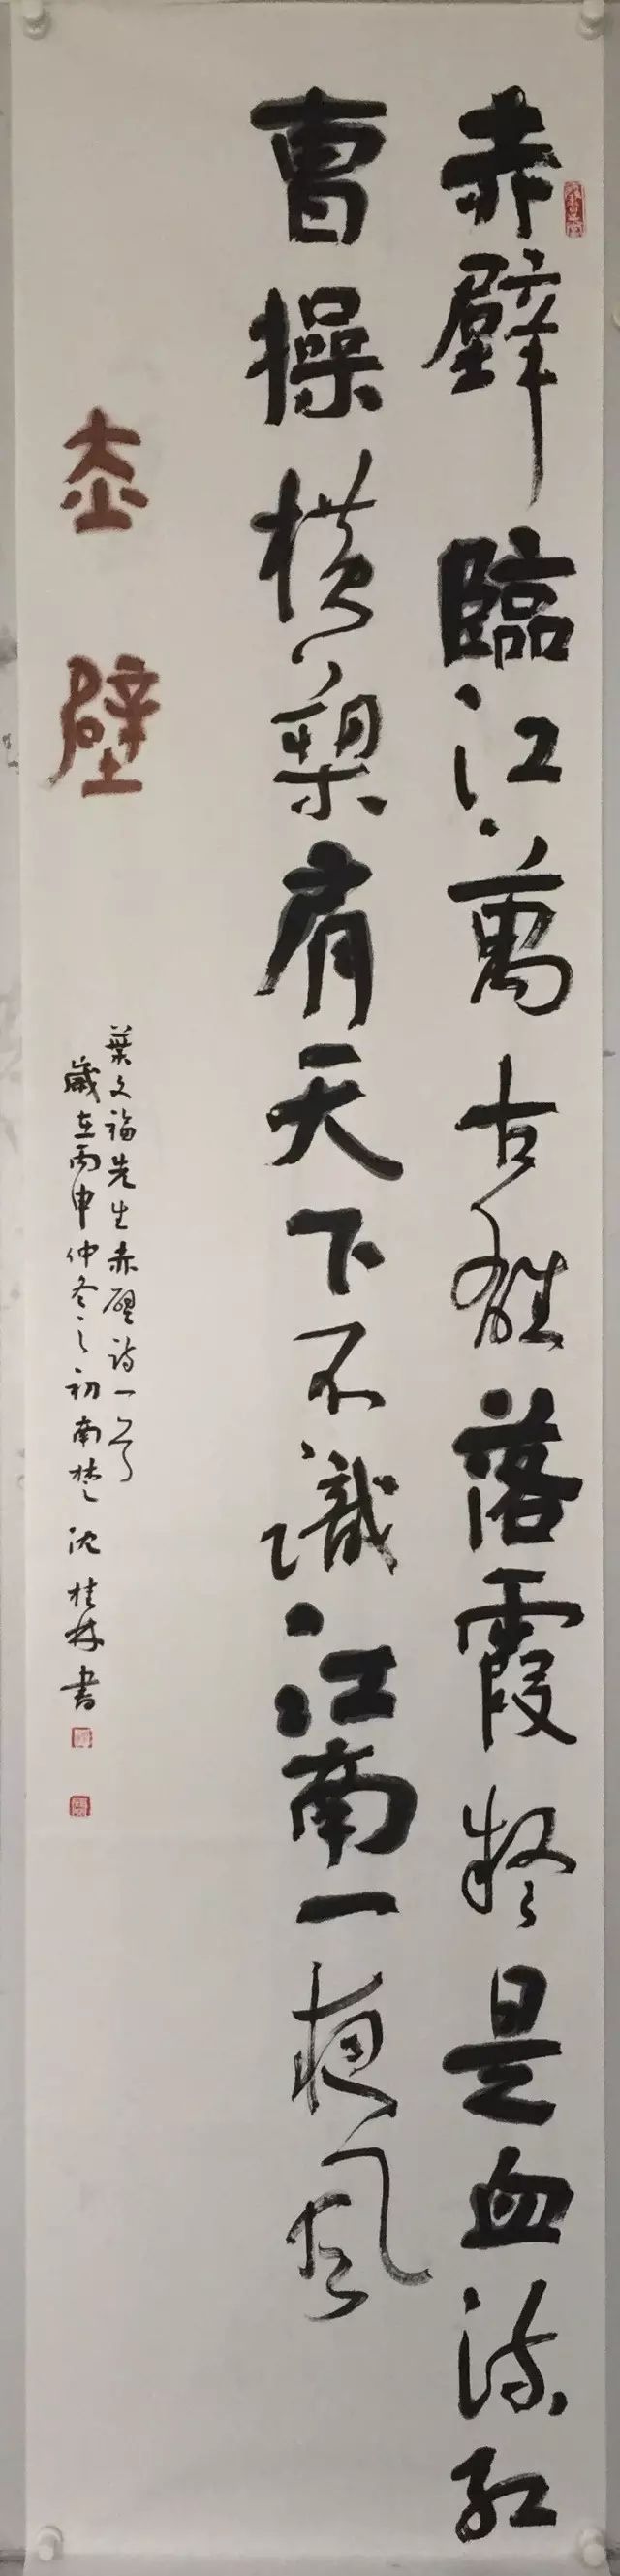 赤壁臨江萬古雄落霞疑是血流紅
曹操橫槊有天下不識江南一夜風
赤壁
葉文福先生赤壁詩一首
歲在丙申仲冬之初南楚沈桂林書